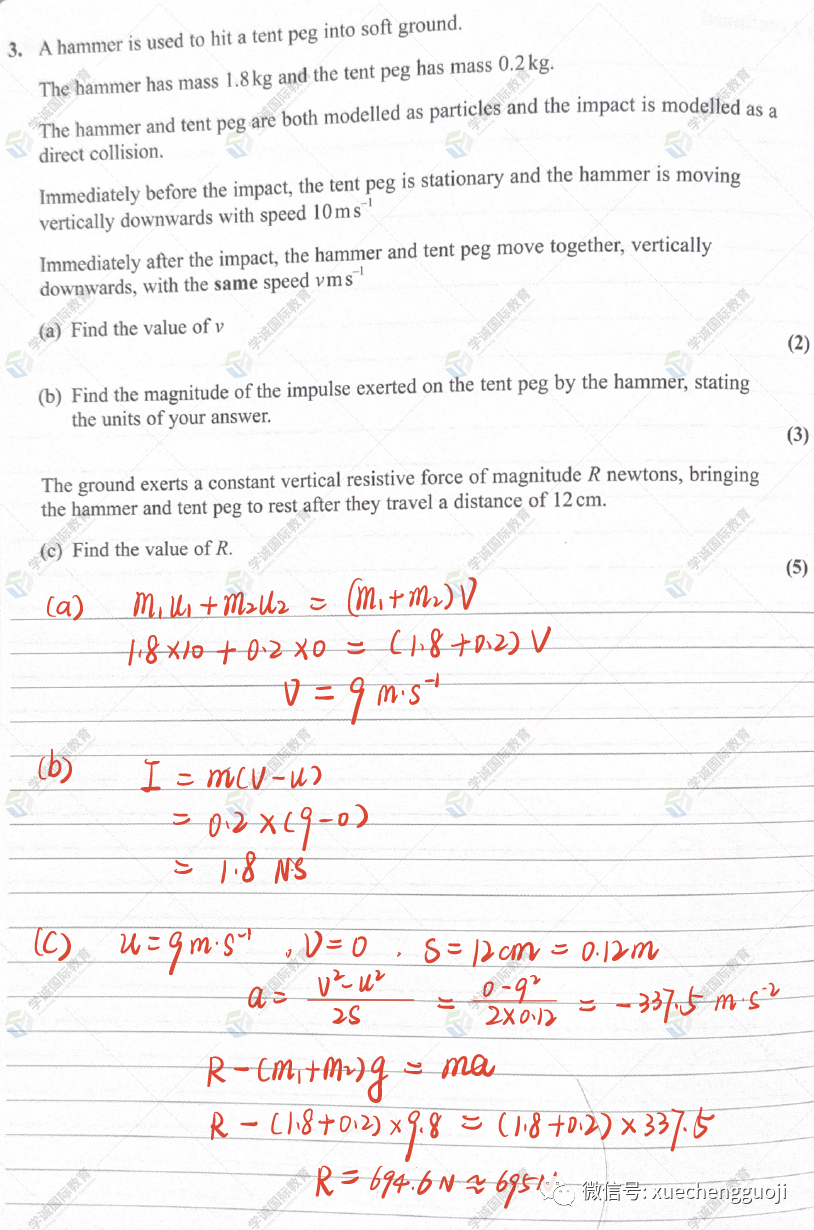 3. A hammer is used to hit a tent peg into soft ground.
The hammer has mass 1.8 kg and the tent peg has mass 0.2 kg.
The hammer and tent peg are both modelled as particles and the impact is modelled as a
direct collision.
Immediately before the impact, the tent peg is stationary and the hammer is moving
vertically downwards with speed 10 m s⁻¹
Immediately after the impact, the hammer and tent peg move together, vertically
downwards, with the same speed v m s⁻¹
(a) Find the value of v
(2)
(b) Find the magnitude of the impulse exerted on the tent peg by the hammer, stating
the units of your answer.
(3)
The ground exerts a constant vertical resistive force of magnitude R newtons, bringing
the hammer and tent peg to rest after they travel a distance of 12 cm.
(c) Find the value of R.
(5)
(a) m₁u₁ + m₂u₂ = (m₁+m₂)V
1.8×10 + 0.2×0 = (1.8+0.2)V
V = 9 m·s⁻¹
(b) I = m(V-u)
= 0.2×(9-0)
= 1.8 NS
(C) u=9m·s⁻¹ , V=0 , S=12cm=0.12m
a = V²-u² / 2S = 0-9² / 2×0.12 = -337.5 m·s⁻²
R-(m₁+m₂)g = ma
R-(1.8+0.2)×9.8 = (1.8+0.2)×337.5
R=694.6N≈695
微信号: xuechengguoji
学诚国际教育